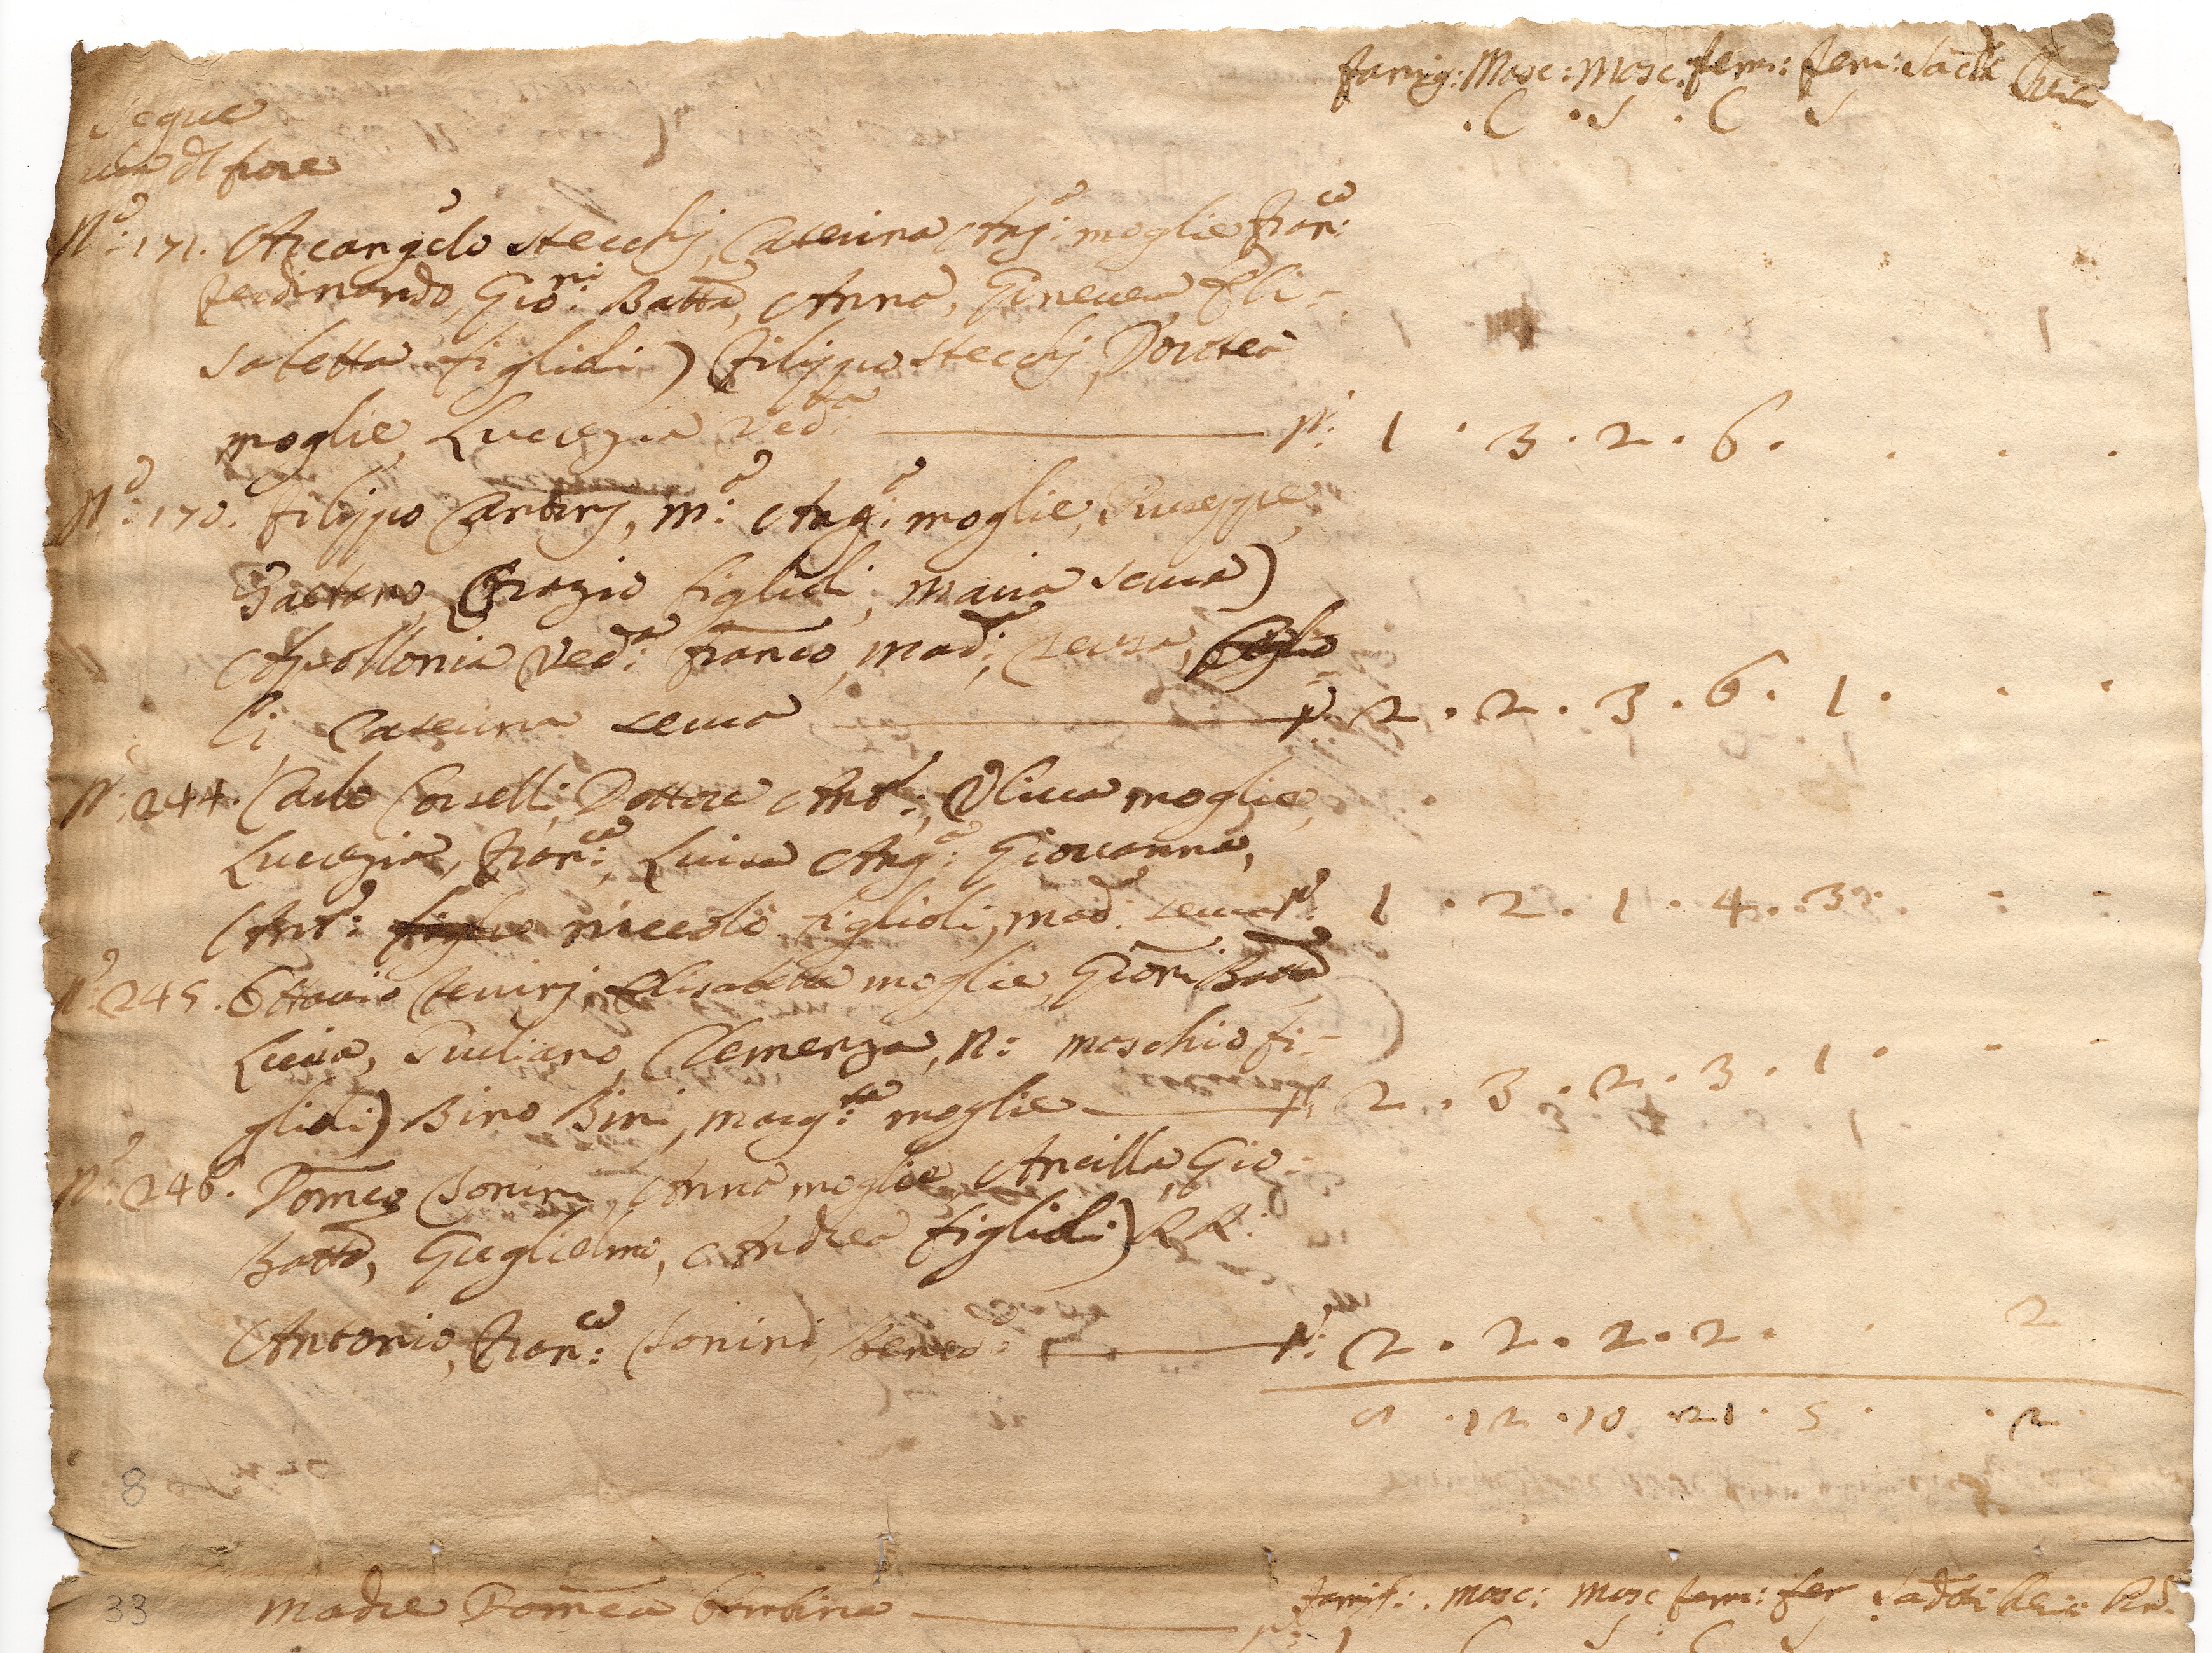 Famig: Masc: Masc: fem: fem: Sacdi Cherici
. C . S . C S
Segue
via dl fiore
No: 171. Arcangelo Stecchj, Caterina Ang:a moglie Fran:co
Ferdinando, Gio:ni Batta, Anna, Ginevera Eli=
sabetta figlioli) Filippo Stecchj, Dorotea
moglie, Lucrezia Ved:a No: 1 . 3 . 2 . 6 .
No: 170. Filippo Cantinj, M:a Ang:a moglie, Giuseppe,
Gaetano, Orazio figlioli, Maria Serva)
Apollonia Ved:a Franco, Mad:a
li, Caterina serva No: 2 . 2 . 3 . 6 . 1 .
No: 244. Carlo Corselli, Dottore Ant:o, Oliva moglie,
Lucrezia, Fran:ca, Luisa Ang:a Giovanna,
Ant:o niccolò figlioli, mad: serva No: 1 . 2 . 1 . 4 . 3 .
No: 245. Ottavio Elisabetta moglie, Gioni Batta
Lucia, Giuliano, Clemenza, N: maschio fi=
glioli) Bino Bini, Marg:ta moglie No: 2 . 3 . 2 . 3 . 1 .
No: 246. Domco Bonini, Anna moglie, Ancilla, Gio=
Batta, Guglielmo, Andrea figlioli) RR:
Antonio, Fran:co Bonini, Bened: No: 2 . 2 . 2 . 2 . 2
. 12 . 10 . 21 . 5 . . 2
8
33 Madre Domca bambina
Famig: Masc: Masc fem: fem Sacdti
No: 1 C S . C S